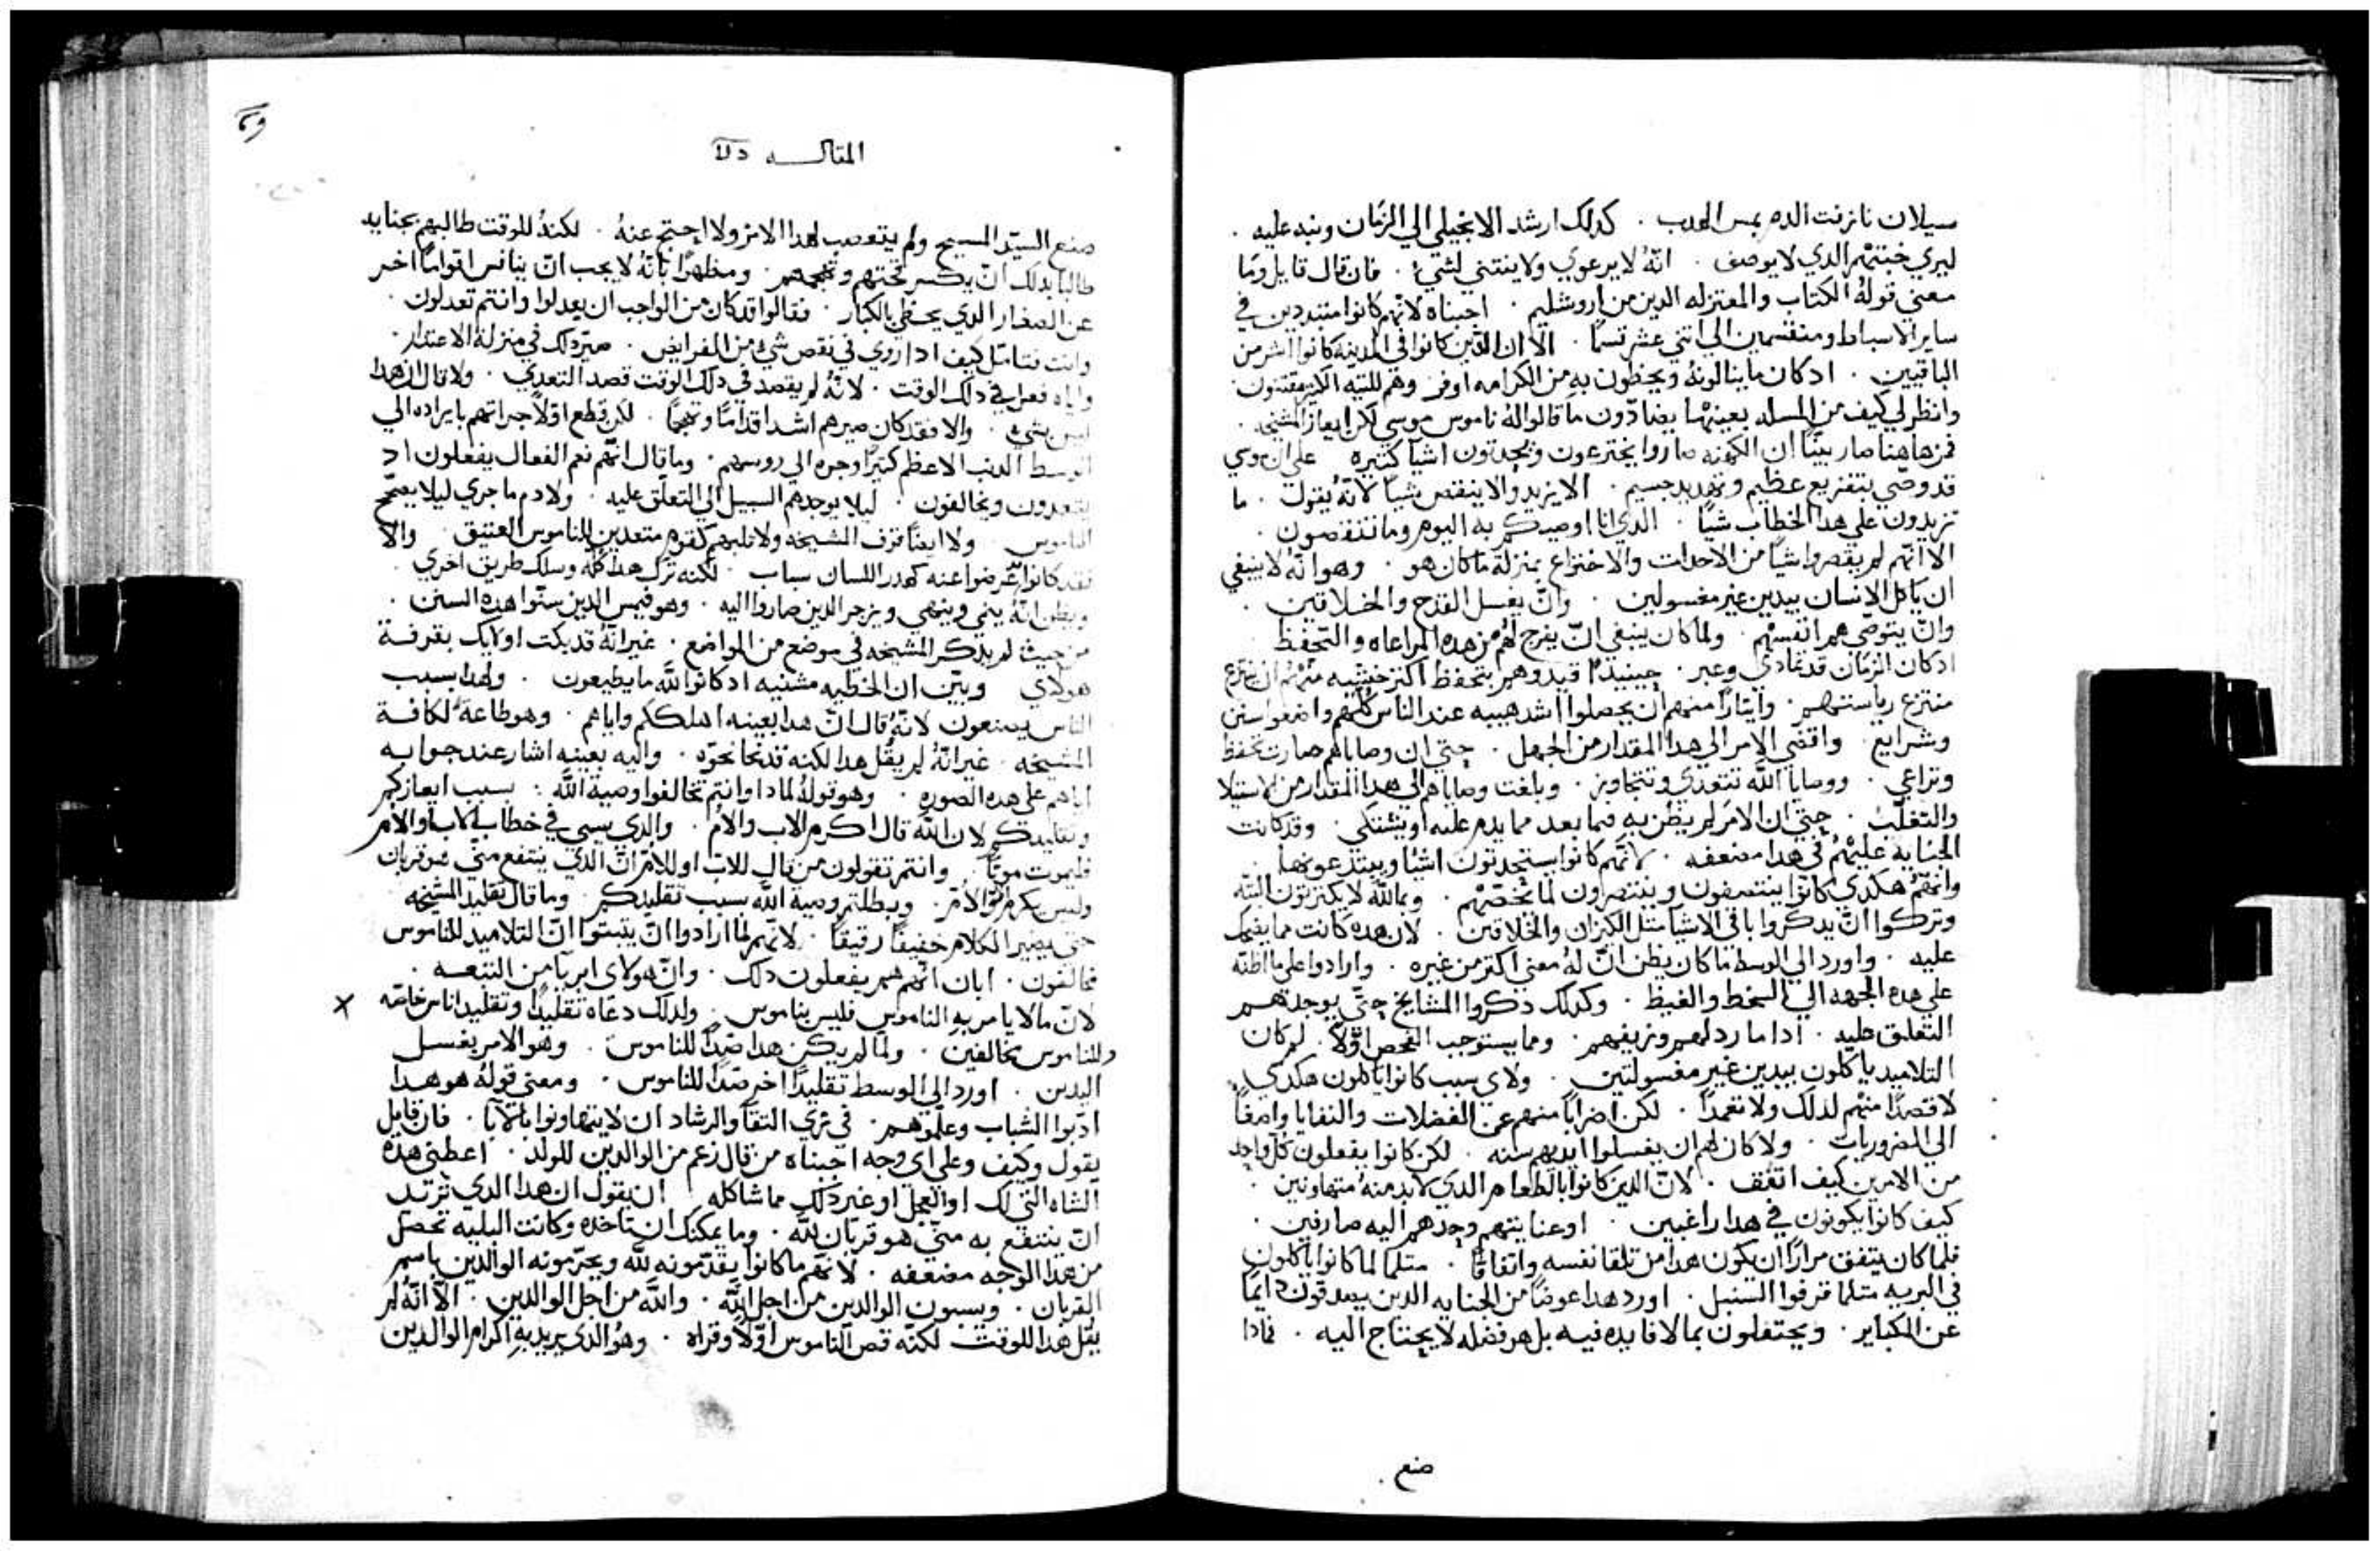 سيلان نازفت الدم بمس الهدب . كدلك ارشد الانجيلي الي الزمان ونبه عليه .
ليري خبثهم الدي لا يوصف . انه لا يرعوي ولا ينتني لشيء . فان قال قايل وما
معني قوله الكتاب والمعتزله الدين من اروشليم . اجبناه لانهم كانوا متبددين في
ساير الاسباط ومنقسمين الي اثني عشر قسما . الا ان الذين كانوا في المدينه كانوا اشر من
الباقيين . ادكان ما ينالونه ويحظون به من الكرامه اوفر وهم للتيه الاكبر مقتنون .
وانظر لي كيف من المسله بعينها يضادون ما قالوا له ناموس موسي لكن ايعاز المشيخه .
فمن هاهنا صار بينا ان الكهنه صاروا يخترعون ويحدثون اشيا كثيره علي ان موسي
قد وصي بتفزيع عظيم وتهديد جسيم . الا يزيدوا لا ينقص شيا لانه يقول . ما
تزيدون علي هدا الخطاب شيا . الدي انا اوصيكم به اليوم وما تنتقصون .
الا انهم لم يقصروا شيا من الاحداث والاختراع بمنزلة ما كان هو . وهو انه لا ينبغي
ان ياكل الانسان بيدين غير مغسولين . وان يغسل القدح والخلاقين .
وان يتوضي هم انفسهم . ولما كان ينبغي ان يفرج لهم من هده المراعاه والتحفظ
ادكان الزمان قد تمادي وعبر . حينيد قيدوهم بتحفظ اكثر خشيه منهم ان ينتزع
منتزع رياستهم . وايثارا منهم ان يحصلوا اشد هيبه عند الناس كلهم واضعوا سنن
وشرايع . واقضي الامر الي هدا المقدار من الجهل . حتي ان وصاياهم صارت تحفظ
وتراعي . ووصايا الله تتعدي وتتجاوز . وبلغت وصاياهم الي هدا المقدار من الاستيلا
والتغلب . حتي ان الامر لم يظن به فيما بعد مما يدم عليه او يشتكي . وقد كانت
الجنايه عليهم في هدا مضعفه . لانهم كانوا يستجدتون اشيا ويبتدعونها .
وانهم هكدي كانوا ينتصفون وينتصرون لما يخصهم . وبالله لا يكترثون البته
وتركوا ان يدكروا باقي الاشيا مثل الكيزان والخلاقين . لان هده كانت مما يضحك
عليه . واورد الي الوسط ما كان يظن ان له معني اكثر من غيره . وارادوا علي ما اظنه
علي هده الجهه الي السخط والغيظ . وكدلك دكروا المشايخ حتي يوجد لهم
التعلق عليه . ادا ما ردلهم وزيفهم . ومما يستوجب الفحص اولا . لم كان
التلاميد ياكلون بيدين غير مغسولتين . ولاي سبب كانوا ياكلون هكدي .
لا قصدا منهم لدلك ولا تعمدا . لكن اضرابا منهم عن الفضلات والنفايا واصغا
الي الضروريات . ولا كان لهم ان يغسلوا ايديهم سنه . لكن كانوا يفعلون كل واحد
من الامرين كيف اتفق . لان الدين كانوا بالطعام الدي لا بد منه متهاونين .
كيف كانوا يكونون في هدا راغبين . او عنايتهم وجدهم اليه صارفين .
فلما كان يتفق مرارا ان يكون هدا من تلقا نفسه واتفاقا . متلما لما كانوا ياكلون
في البريه متلما قرفوا السنبل . اورد هدا عوضا من الجنايه الدين يصدفون دايما
عن الكباير . ويحتفلون بما لا فايده فيه بل هو فضله لا يحتاج اليه . فمادا
صنع .
المقالـــه
صنع السيد المسيح ولم يتعصب لهدا الامر ولا احتج عنه . لكنه للوقت طالبهم بجنايه
طالبا بدلك ان يكسر قحتهم وتهجمهم . ومظهرا بانه لا يجب ان ينافس اقواما اخر
عن الصغار الدي يخطي بالكبار . فقالوا قد كان من الواجب ان يعدلوا وانتم تعدلون .
وانت فتامل كيف ادا روي في نقص شيء من الفرايض . صير دلك في منزلة الاعتدار .
واياه فعل في دلك الوقت . لانه لم يقصد في دلك الوقت قصد التعدي . ولا قال ان هدا
ليس بشيء . والا فقد كان صيرهم اشد اقداما وتهجما . لكن قطع اولا جراتهم بايراده الي
الوسط الدنب الاعظم كثيرا وجره الي روسهم . وما قال انهم نعم الفعال يفعلون اد
يتعدون ويخالفون . ليلا يوجدهم السبيل الي التعلق عليه . ولا دم ما جري ليلا يصحح
الناموس . ولا ايضا قرف المشيخه ولا ثلبهم كقوم متعدين للناموس العتيق . والا
فقد كانوا عرضوا عنه كهدر اللسان سباب . لكنه ترك هدا كله وسلك طريق اخري .
ويظن انه يثني وينهي ويزجر الدين صاروا اليه . وهو فيمس الدين سنوا هده السنن .
من حيث لم يدكر المشيخه في موضع من المواضع . غير انه قد بكت اولايك بقرفة
هولاي . وبين ان الخطيه مثنيه ادكانوا لله ما يطيعون . ولهدا بسبب
الناس يصنعون لانه قال ان هدا بعينه اهلككم واياهم . وهو طاعة لكافة
المشيخه . غير انه لم يقل هدا لكنه قد نحا نحوه . واليه بعينه اشار عند جوابه
اياهم علي هده الصوره . وهو قوله لمادا وانتم تخالفوا وصية الله : بسبب ايعازكم
وتقليدكم لان الله قال اكرم الاب والام . والدي يسي في خطاب الاب او الام
فليموت موتا . وانتم تقولون من قال للاب او للام ان الدي ينتفع مني هو قربان
وليس يكرم الاب والام . وبطلتم وصية الله بسبب تقليدكم . وما قال تقليد المشيخه
حتي يصير الكلام خفيفا رقيقا . لانهم لما ارادوا ان يثبتوا ان التلاميد للناموس
مخالفون . ابان انهم هم يفعلون دلك . وان هولاي ابريا من التبعه .
لان ما لا يامر به الناموس فليس بناموس . ولدلك دعاه تقليدا وتقليد اناس خاصه
وللناموس مخالفين . ولما لم يكن هدا ضدا للناموس . وهو الامر بغسل
اليدين . اورد الي الوسط تقليدا اخر ضدا للناموس . ومعني قوله هو هدا
ادبوا الشباب وعلموهم . في زي التقا والرشاد ان لا يتهاونوا بالابا . فان قايل
يقول وكيف وعلي اي وجه اجبناه من قال زعم من الوالدين للولد . اعطني هده
الشاه التي لك او العجل او غير دلك مما شاكله . ان يقول ان هدا الدي تريد
ان ينتفع به مني هو قربان لله . وما يمكنك ان تاخده وكانت البليه تحصل
من هدا الوجه مضعفه . لانهم ما كانوا يقدمونه لله ويحرمونه الوالدين باسم
القربان . ويسبون الوالدين من اجل الله . والله من اجل الوالدين . الا انه لم
يقل هدا للوقت لكنه قص الناموس اولا وقراه . وهو الدي يريد به اكرام الوالدين